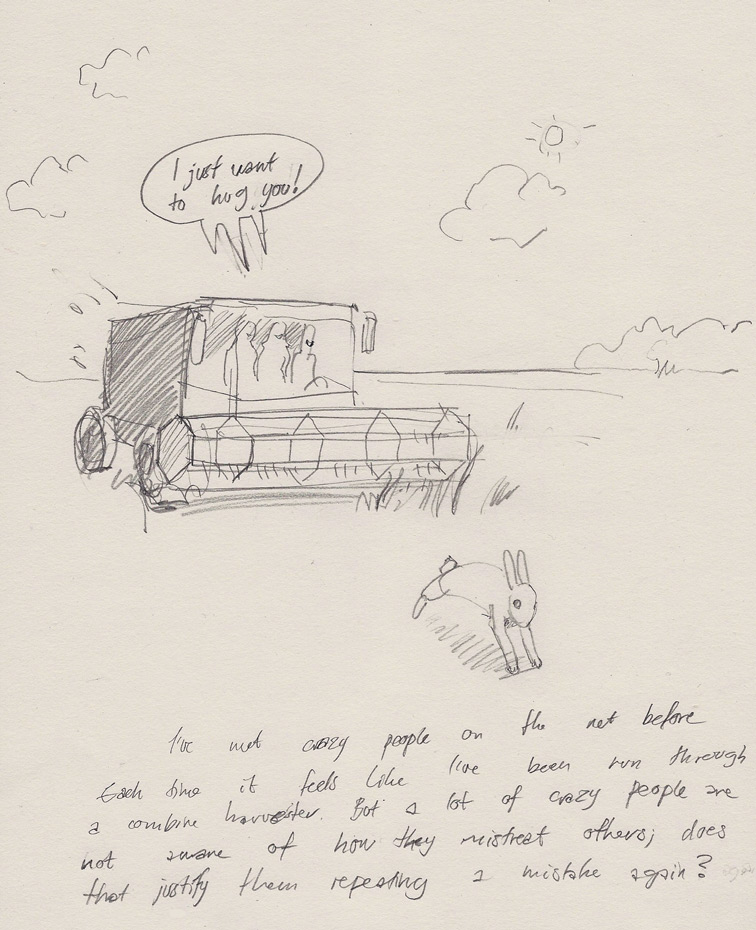 I just want
to hug you!
I've met crazy people on the net before
Each time it feels like I've been run through
a combine harvester. But a lot of crazy people are
not aware of how they mistreat others; does
that justify them repeating a mistake again?